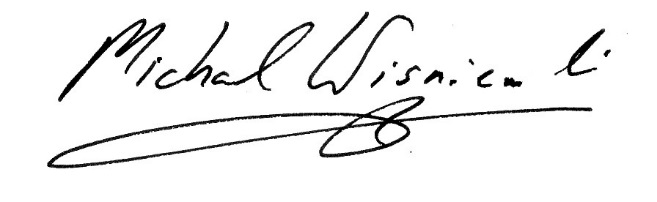 Michal Wisniewski